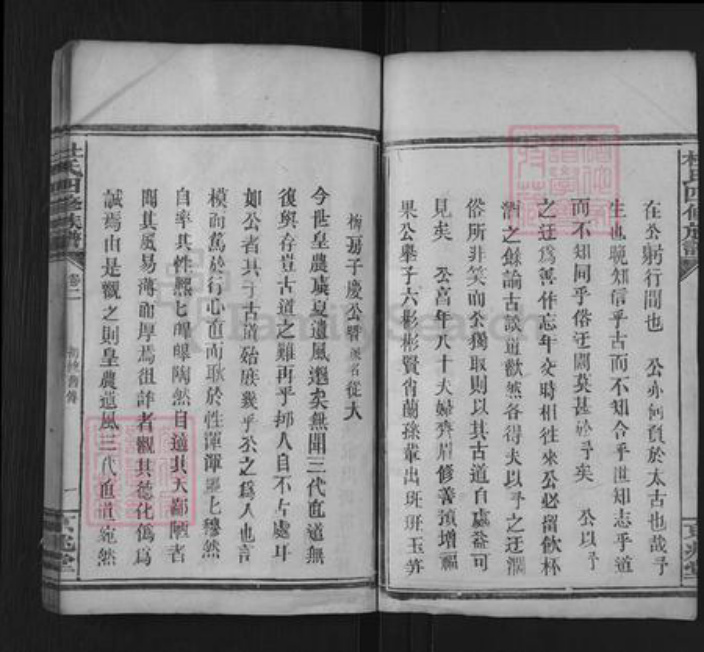 杜氏四修族譜
京兆堂
在公躬行間也 公亦何負於太古也哉予
生也晚知信乎古而不知合乎世知志乎道
而不知同乎俗迂闊莫甚於予矣 公以予
之迂為善伴忘年交時相往來公必留飲杯
酒之餘論古談道歡然各得夫以予之迂濶
俗所非笑而公獨取則以其古道自處益可
見矣 公享年八十夫婦齊眉修善預增福
果公舉子六彬彬賢肖蘭孫輩出班班玉笋
梅房子慶公暨派名從大
今世皇農虞夏遺風邈矣無聞三代直道無
復與存豈古道之難再乎抑人自不古處耳
如公者其于古道殆庶幾乎公之為人也言
模而篤於行心直而耿於性渾渾噩上穆然
自率其性熙上皥皥陶然自適其天鄙陋者
聞其風易薄而厚焉徂詐者觀其德化偽為
誠焉由是觀之則皇農遺風三代直道宛然
杜氏四修族譜
卷二
舊傳
一
京兆堂
FamilySearch